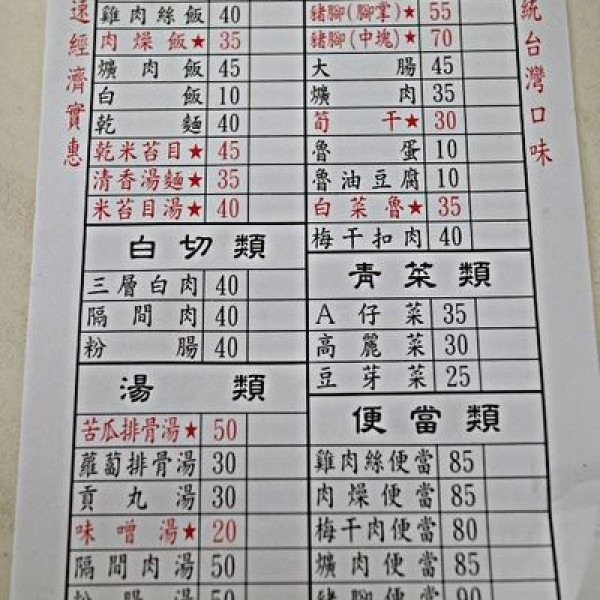 遠經濟實惠
雞肉絲飯 40
肉燥飯★ 35
爌肉飯 45
白飯 10
乾麵 40
乾米苔目★ 45
清香湯麵★ 35
米苔目湯★ 40
白切類
三層白肉 40
隔間肉 40
粉腸 40
湯類
苦瓜排骨湯★ 50
蘿蔔排骨湯 30
貢丸湯 30
味噌湯★ 20
隔間肉湯 50
粉腸湯 50
豬腳(腳掌)★ 55
豬腳(中塊)★ 70
大腸 45
爌肉 35
筍干★ 30
魯蛋 10
魯油豆腐 10
白菜魯★ 35
梅干扣肉 40
青菜類
A仔菜 35
高麗菜 30
豆芽菜 25
便當類
雞肉絲便當 85
肉燥便當 85
梅干肉便當 80
爌肉便當 85
豬腳便當 90
統台灣口味